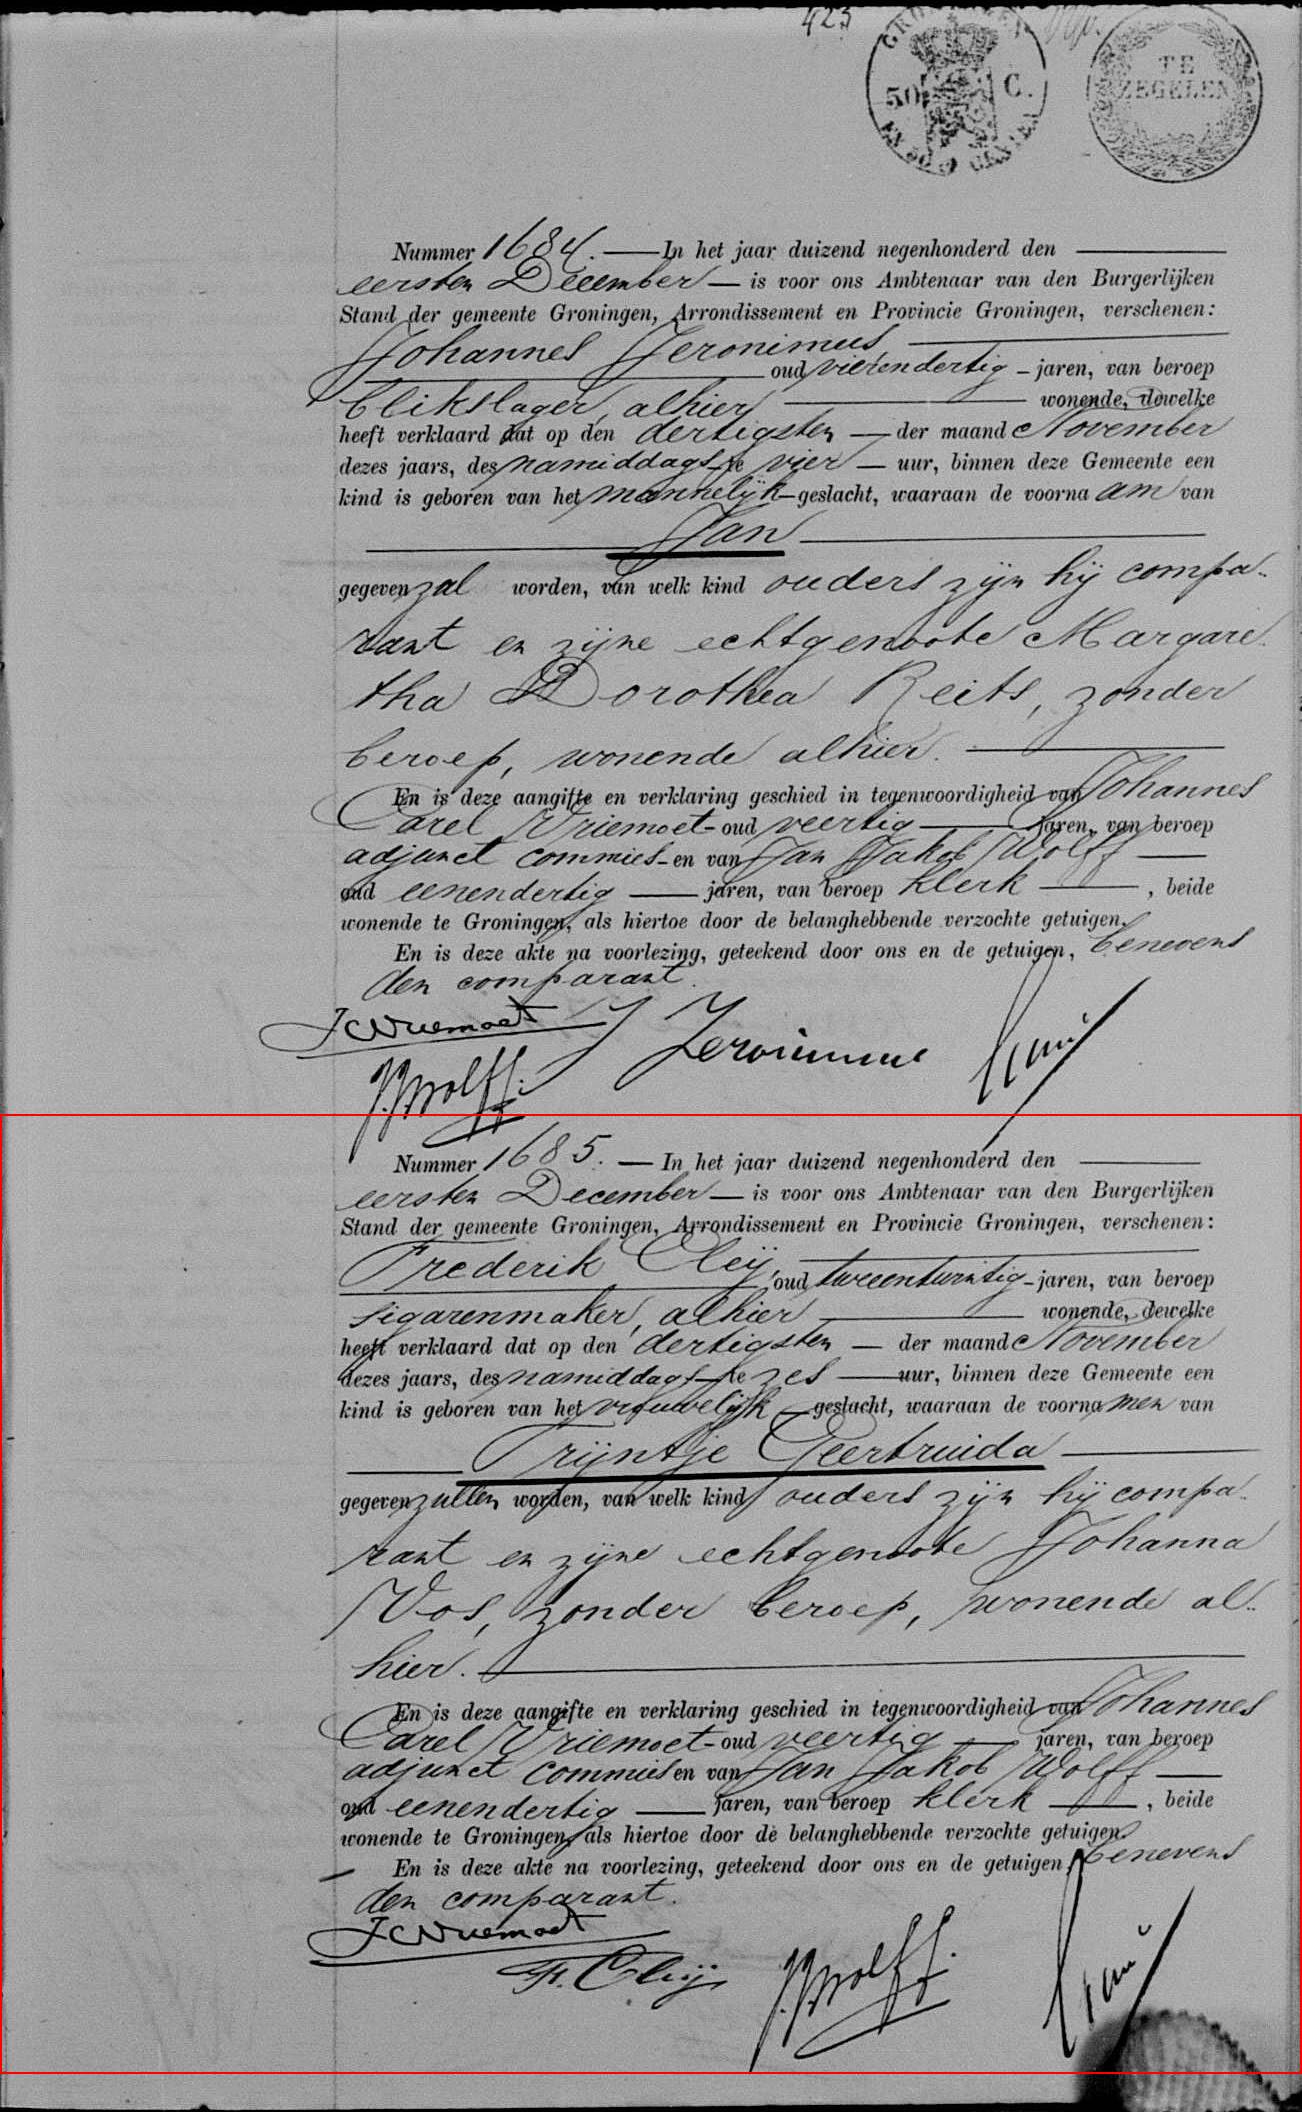 423
GRONINGEN
50 C.
EN 50 CENTEN
TE
ZEGELEN
Nummer 1684. — In het jaar duizend negenhonderd den
eersten December — is voor ons Ambtenaar van den Burgerlijken
Stand der gemeente Groningen, Arrondissement en Provincie Groningen, verschenen:
Johannes Jeronimus,
oud vierendertig - jaren, van beroep
blikslager, alhier wonende, dewelke
heeft verklaard dat op den dertigsten — der maand November
dezes jaars, des namiddags te vier — uur, binnen deze Gemeente een
kind is geboren van het mannelijk geslacht, waaraan de voornaam van
Jan
gegeven zal worden, van welk kind ouders zijn hij compa-
rant en zijne echtgenoote Margare-
tha Dorothea Reits, zonder
beroep, wonende alhier.
En is deze aangifte en verklaring geschied in tegenwoordigheid van Johannes
Carel Vriemoet oud veertig — jaren, van beroep
adjunct commies en van Jan Jakob Wolff
oud eenendertig — jaren, van beroep klerk —, beide
wonende te Groningen, als hiertoe door de belanghebbende verzochte getuigen.
En is deze akte na voorlezing, geteekend door ons en de getuigen, benevens
den comparant.
JCVriemoet J Jeronimus
JJWolff.
Nummer 1685. — In het jaar duizend negenhonderd den
eersten December — is voor ons Ambtenaar van den Burgerlijken
Stand der gemeente Groningen, Arrondissement en Provincie Groningen, verschenen:
Frederik Cleij,
oud tweeentwintig - jaren, van beroep
sigarenmaker, alhier wonende, dewelke
heeft verklaard dat op den dertigsten — der maand November
dezes jaars, des namiddags te zes — uur, binnen deze Gemeente een
kind is geboren van het vrouwelijk geslacht, waaraan de voornamen van
Trijntje Geertruida
gegeven zullen worden, van welk kind ouders zijn hij compa-
rant en zijne echtgenoote Johanna
Vos, zonder beroep, wonende al-
hier.
En is deze aangifte en verklaring geschied in tegenwoordigheid van Johannes
Carel Vriemoet oud veertig — jaren, van beroep
adjunct commies en van Jan Jakob Wolff
oud eenendertig — jaren, van beroep klerk —, beide
wonende te Groningen, als hiertoe door de belanghebbende verzochte getuigen.
En is deze akte na voorlezing, geteekend door ons en de getuigen, benevens
den comparant.
JCVriemoet
Fr. Cleij JJWolff.